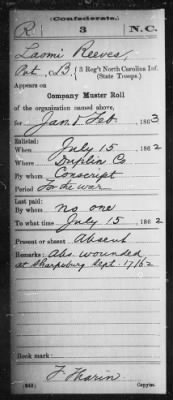 Confederate.
R 3 N.C.
Laomi Reeves
Pvt, Co. B, 3 Reg't North Carolina Inf.
(State Troops.)
Appears on
Company Muster Roll
of the organization named above,
for Jan & Feb, 1863
Enlisted:
When July 15, 1862
Where Duplin Co
By whom Conscript
Period For the war
Last paid:
By whom No one
To what time July 15, 1862
Present or absent Absent
Remarks: Abs. wounded
at Sharpsburg Sept. 17/62
Book mark:
F Tharin
(642) Copyist.